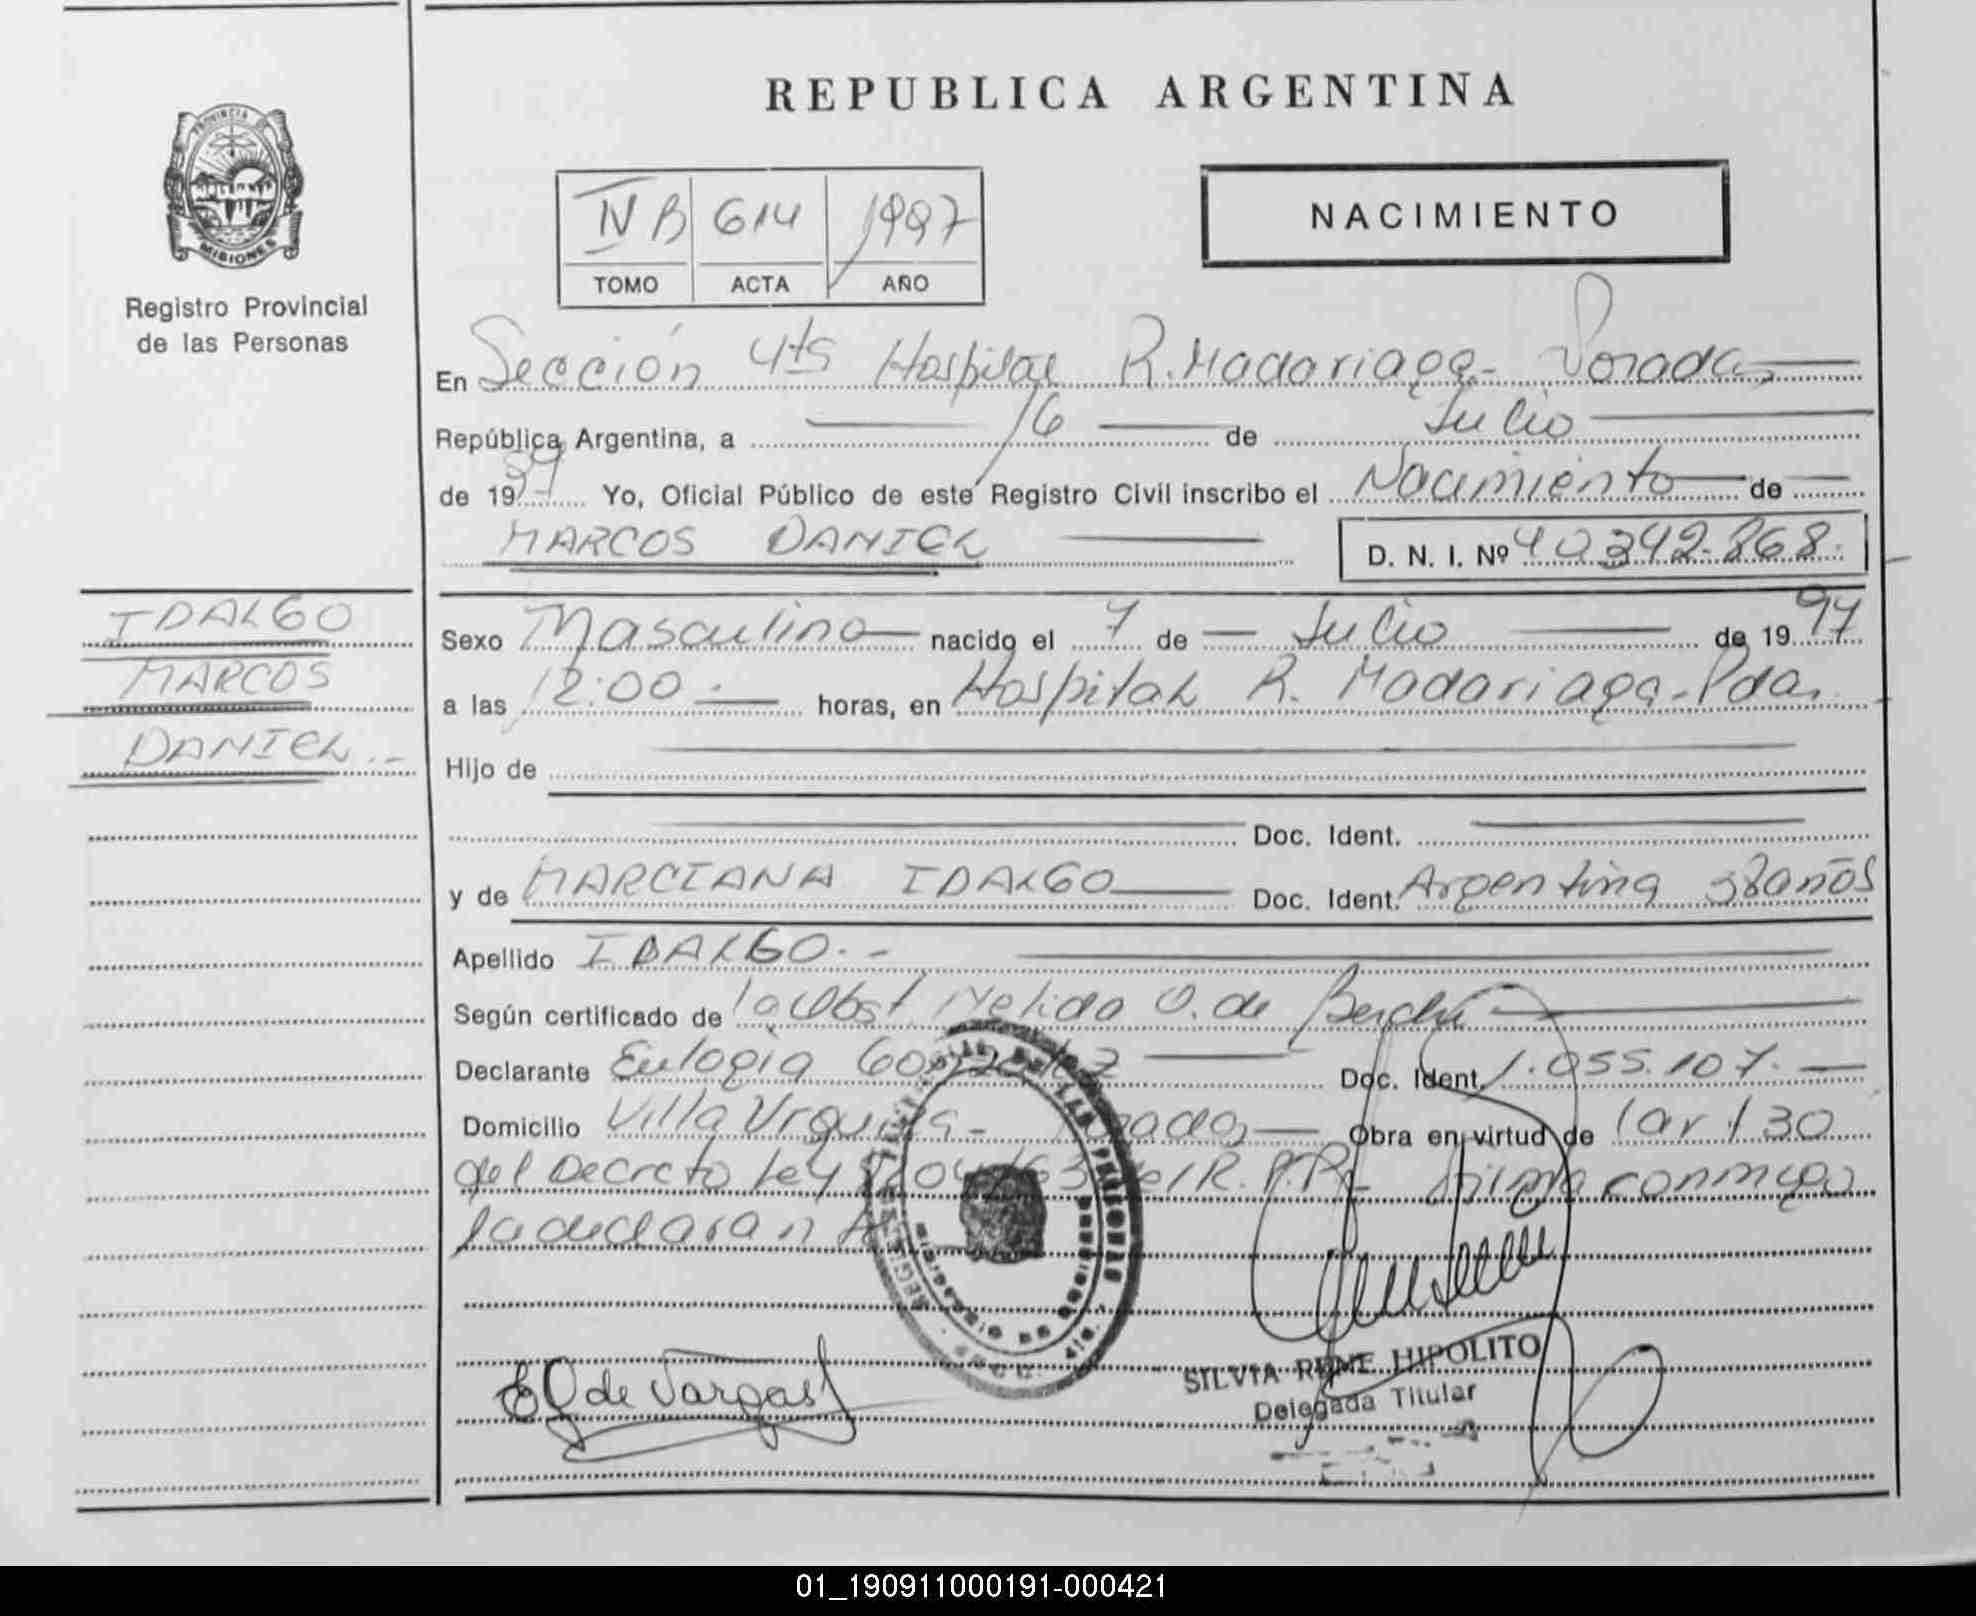 REPUBLICA ARGENTINA
PROVINCIA DE
MISIONES
Registro Provincial
de las Personas
IV B 614 1997
TOMO ACTA AÑO
NACIMIENTO
En Sección 4ta Hospital R. Madariaga - Posadas
República Argentina, a 16 de Julio
de 1997 Yo, Oficial Público de este Registro Civil inscribo el Nacimiento de
MARCOS DANIEL D. N. I. Nº 40.342.868.
IDALGO
MARCOS
DANIEL.-
Sexo Masculino nacido el 7 de Julio de 1997
a las 12:00.- horas, en Hospital R. Madariaga - Pdas.
Hijo de
Doc. Ident.
y de MARCIANA IDALGO Doc. Ident. Argentina 38 años
Apellido IDALGO.-
Según certificado de la Obst. Nelida O. de
Declarante Eulogia Doc. Ident. 1.055.107.-
Domicilio Villa Urquiza - Posadas Obra en virtud de l art 30
del Decreto Ley 8204/63 del R. P. P. - firma conmigo
la declarante
E G de Vargas
SILVIA RENE HIPOLITO
Delegada Titular
01_190911000191-000421